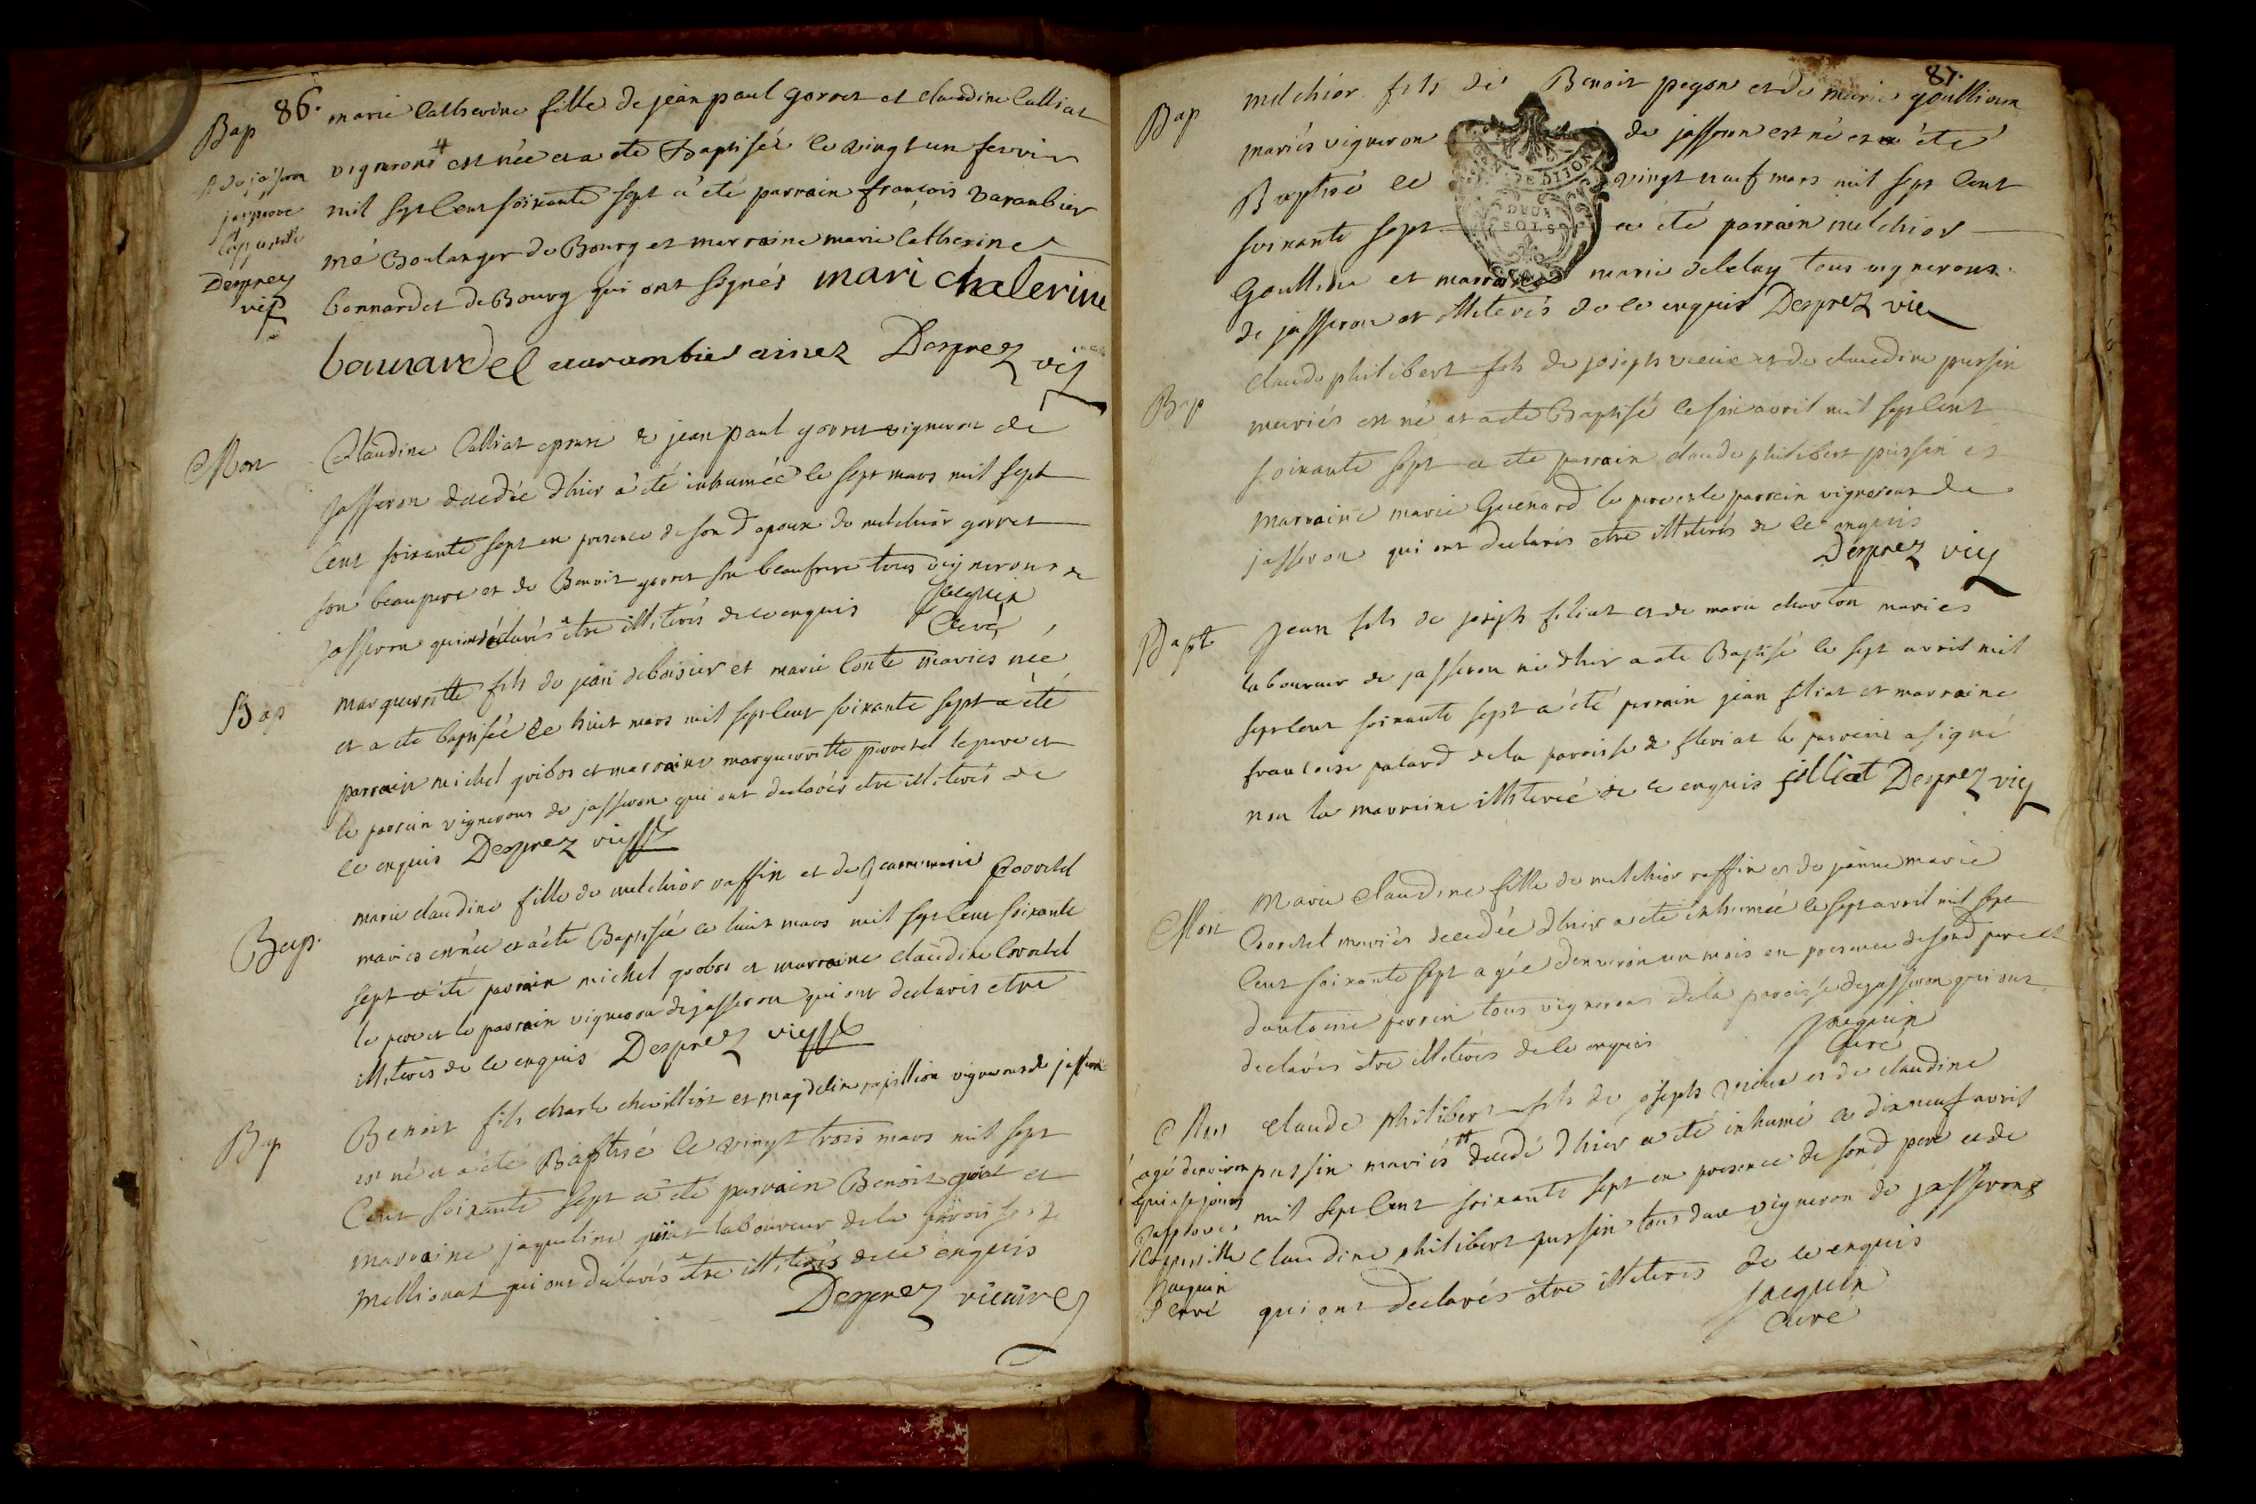 86.
Bap
marie Catherine fille de jean paul gorret et claudine Calliat
vignerons # est née et a été Baptiseé le vingt un fevrier
mil sept Cent soixante sept a été parrain françois varambier
mé Boulanger de Bourg et marraine marie Catherine
bonnardet de Bourg qui ont signés mari chaterine
bonnardel varambier ainez Desprez vic
# de jasseron
japprouve
lapostille
Desprez
vic
Mort
Claudine Calliat epouse de jean paul gorret vigneron de
jasseron decedée d'hier a été inhumée le sept mars mil sept
Cent soixante sept en presence de son d epoux de melchior gorret
son beaupere et de Benoit gorret son beaufrere tous vignerons de
jasseron qui ont déclarés être illiterés de ce enquis Jacquin
Curé
Bap
margueritte fils de jean deboisier et marie Conte mariés née
et a été baptisée le huit mars mil sept Cent soixante sept a été
parrain michel grobos et marraine marguerritte perretel le pere et
le parrain vignerons de jasseron qui ont declarés etre illiterés de
ce enquis Desprez vic
Bap.
marie claudine fille de melchior raffin et de jeanne marie Crochtel
mariés est née et a été Baptisée le huit mars mil sept Cent soixante
sept a été parrain michel grobos et marraine claudine
le pere et le parrain vigneron de jasseron qui ont declarés etre
illiterés de ce enquis Desprez vic
Bap
Benoit fils charle chevillist et magdelin papillion vignerons de jasseron
est né et a été Baptisé le vingt trois mars mil sept
Cent soixante sept a été parrain Benoit goiat et
marraine jaqueline goiat laboureur de la paroisse de
mellionat qui ont declarés être illiterés de ce enquis
Desprez vicaire
87.
Bap
melchior fils de Benoit pegon et de marie goullion
mariés vigneron de jasseron est né et a été
Baptisé le vingt neuf mars mil sept Cent
soixante sept a été parrain melchior
Goullion et marraine marie delelay tous vignerons
de jasseron et illiterés de ce enquis Desprez vic
DE DIJON
DEUX
SOLS
Bap
claude philibert fils de joseph vieux et de claudine pussin
mariés est né et a été Baptisé le six avril mil sept Cent
soixante sept a été parrain claude philibert pussin et
marraine marie Guenard le pere et le parrain vignerons de
jasseron qui ont declarés etre illiterés de ce enquis
Desprez vic
Bapt
Jean fils de joseph filiat et de marie charton mariés
laboureur de jasseron né d'hier a été Baptisé le sept avril mil
sept Cent soixante sept a été parrain jean filiat et marraine
francoise palard de la paroisse de fleriat le parrain a signé
non la marraine illiterée de ce enquis filliat Desprez vic
Mort
Marie claudine fille de melchior raffin et de jeanne marie
Crochtel mariés decedée d'hier a été inhumée le sept avril mil sept
Cent soixante sept agée d'environ un mois en presence de sond pere et
d'antoine perrin tous vignerons de la paroisse de jasseron qui ont
declarés être illiterés de ce enquis
Jacquin
Curé
Mort
claude philibert fils de joseph vieux et de claudine
pussin mariés # decedé d'hier a été inhumé le dix neuf avril
mil sept Cent soixante sept en presence de sond pere et de
Claudine philibert pussin tous deux vigneron de jasseron
qui ont declarés être illiterés de ce enquis
Jacquin
Curé
agé d'environ
quinze jours
japprouve
lapostille
Jacquin
Curé